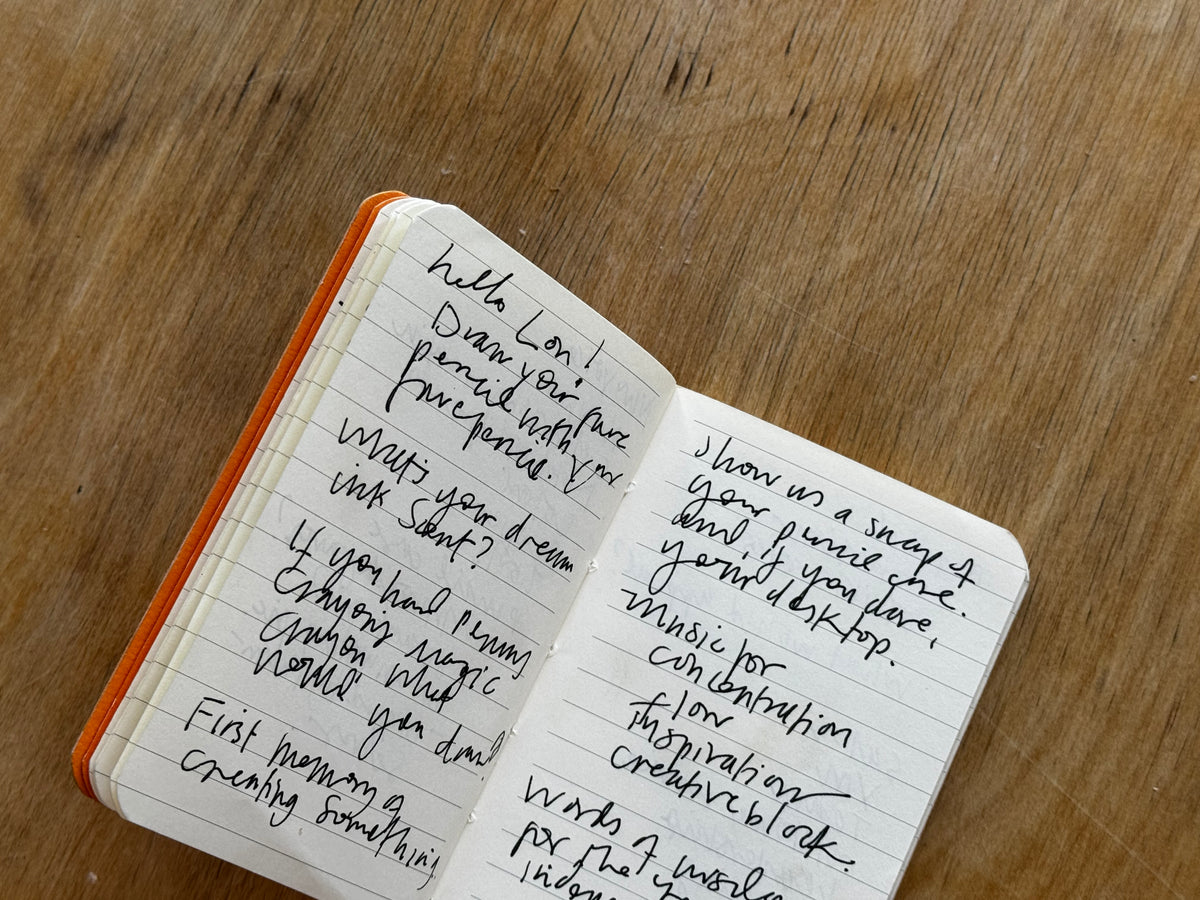 hello Lon!
Draw your fave
pencil with your
fave pencil.
What's your dream
ink Scent?
If you had penny
Crayons magic
Crayon what
would
you draw?
First memory of
creating something
show us a snap of
your pencil case.
and, if you dare,
your desktop.
Music for
concentration
flow
inspiration
creative block.
Words of wisdo
for the
inde